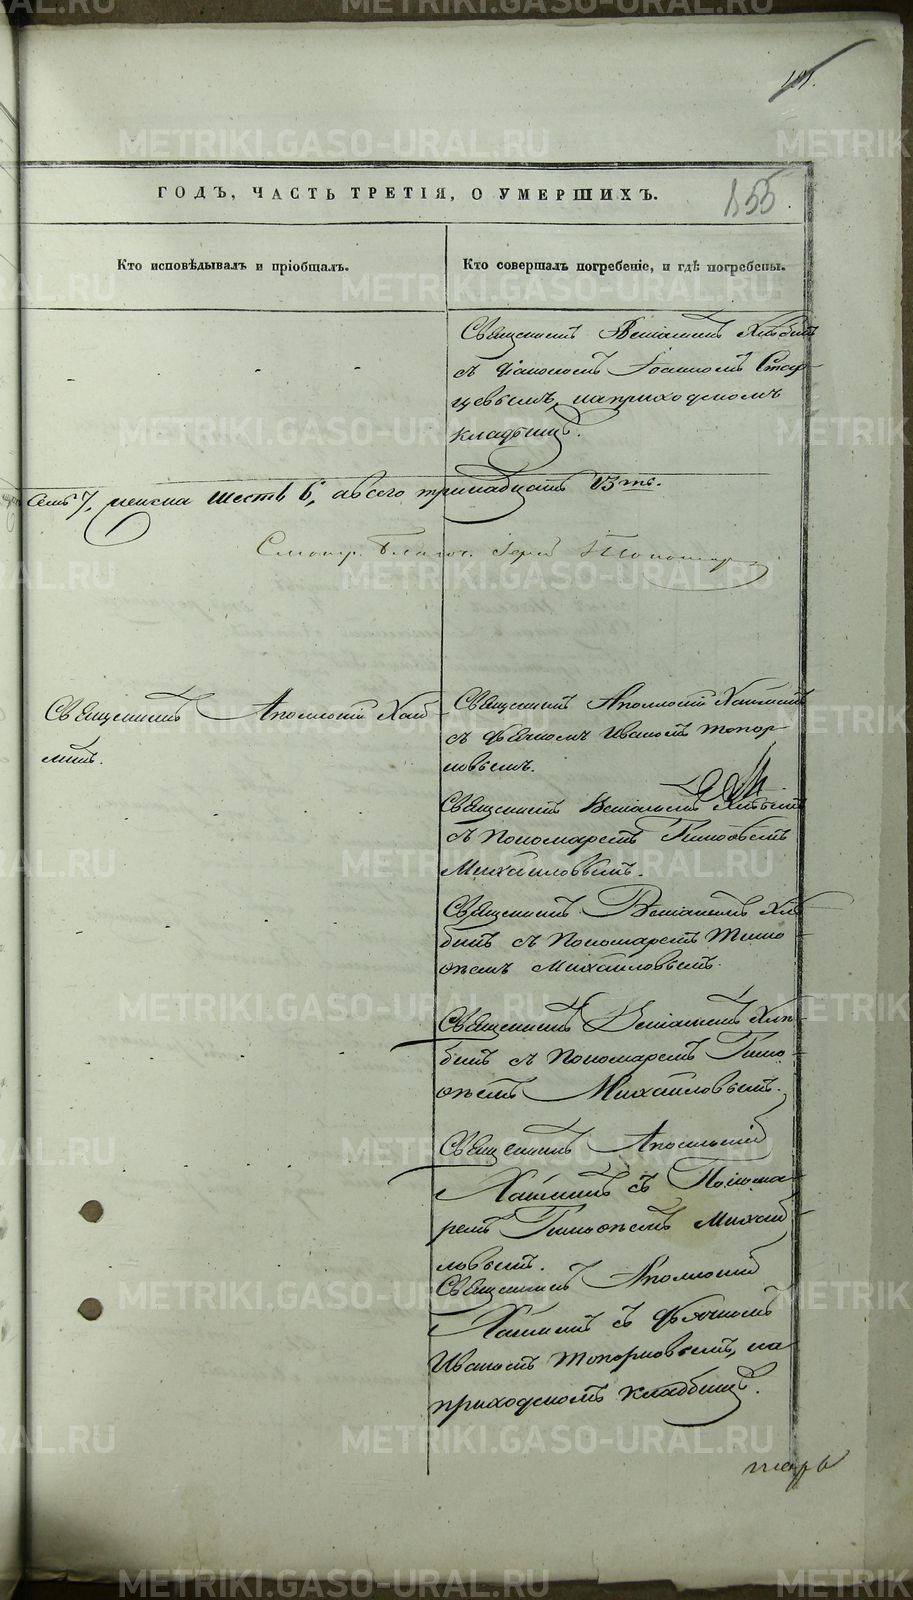 101.
ГОДЪ, ЧАСТЬ ТРЕТІЯ, О УМЕРШИХЪ.
155.
Кто исповѣдывалъ и пріобщалъ.
Кто совершалъ погребеніе, и гдѣ погребены.
Священникъ
съ Діакономъ Іоанномъ Стар-
цевымъ, на приходскомъ
кладбищѣ.
семь 7, женска шесть 6, а всего тринадцать 13ть.
Смотр. Благоч. Іерей
Священникъ Аполлоній Хай-
линъ.
Священникъ Аполлоній Хайлинъ
съ Дьячкомъ Иваномъ Топор-
ковымъ.
Священникъ
съ Пономаремъ Тимоѳеемъ
Михайловымъ.
Священникъ
съ Пономаремъ Тимо-
ѳеемъ Михайловымъ.
Священникъ
съ Пономаремъ Тимо-
ѳеемъ Михайловымъ.
Священникъ Аполлоній
Хайлинъ съ Понома-
ремъ Тимоѳеемъ Михай-
ловымъ.
Священникъ Аполлоній
Хайлинъ съ Дьячкомъ
Иваномъ Топорковымъ, на
приходскомъ кладбищѣ.
METRIKI.GASO-URAL.RU